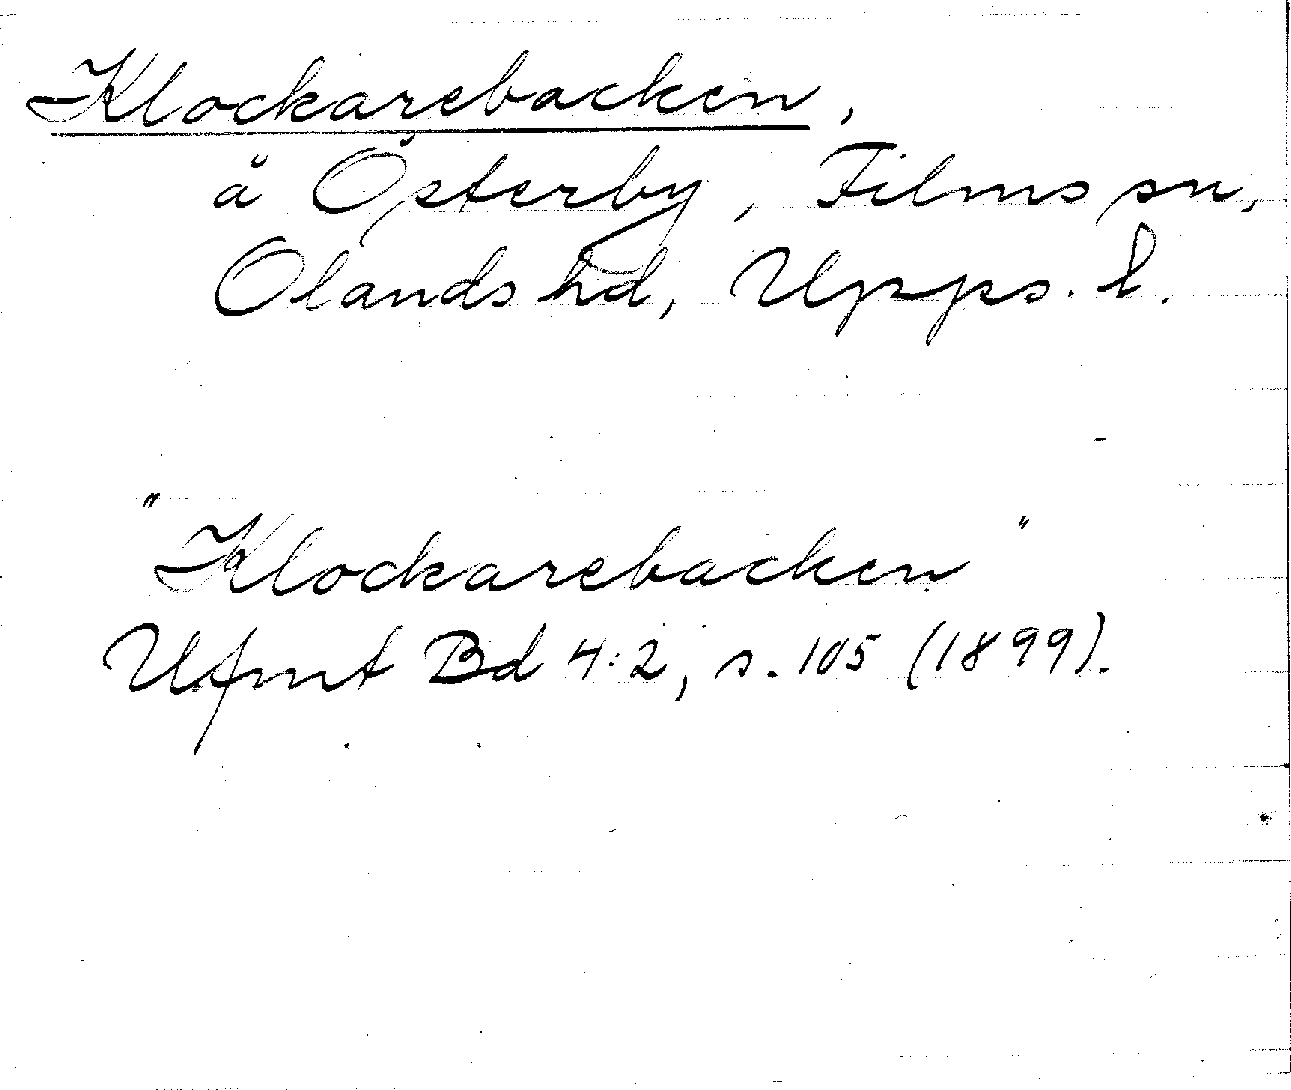 Klockarebacken,
å Österby, Films sn,
Olands hd, Upps. l.
"Klockarebacken"
Ufmt Bd 4:2, s. 105 (1899).